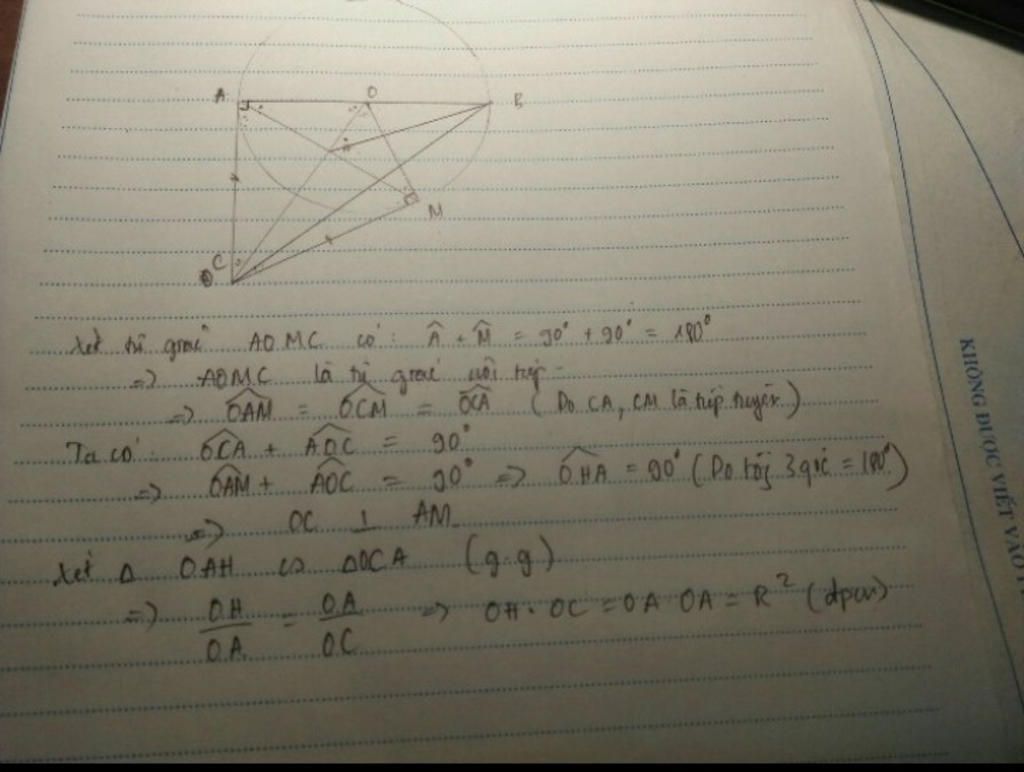 A
O
B
H
M
C
Xét tứ giác AOMC có: Â + M̂ = 90° + 90° = 180°
=> AOMC là tứ giác nội tiếp
=> OAM = OCM = OCA (Do CA, CM là tiếp tuyến)
Ta có: OCA + AOC = 90°
=> OAM + AOC = 90° => OHA = 90° (Do tổng 3 góc = 180°)
=> OC ⊥ AM
Xét Δ OAH ∽ ΔOCA (g.g)
=> OH/OA = OA/OC => OH . OC = OA OA = R² (đpcm)
KHÔNG ĐƯỢC VIẾT VÀO